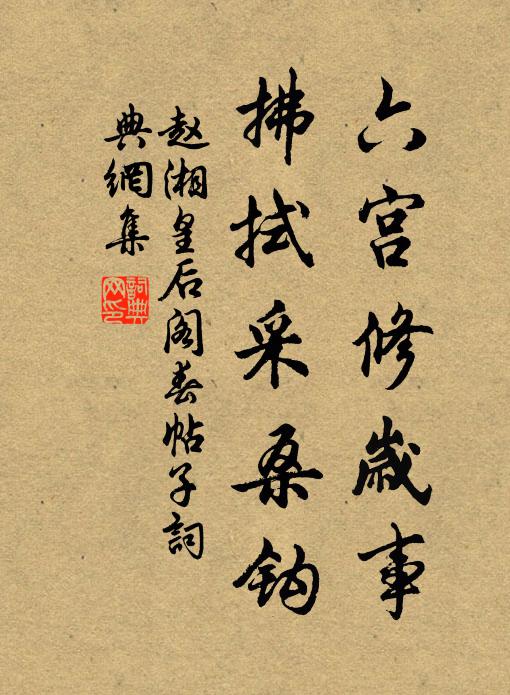 六宫修歲事
拂拭采桑鈎
赵湘皇后阁春帖子詞
典網集
詞典
网印